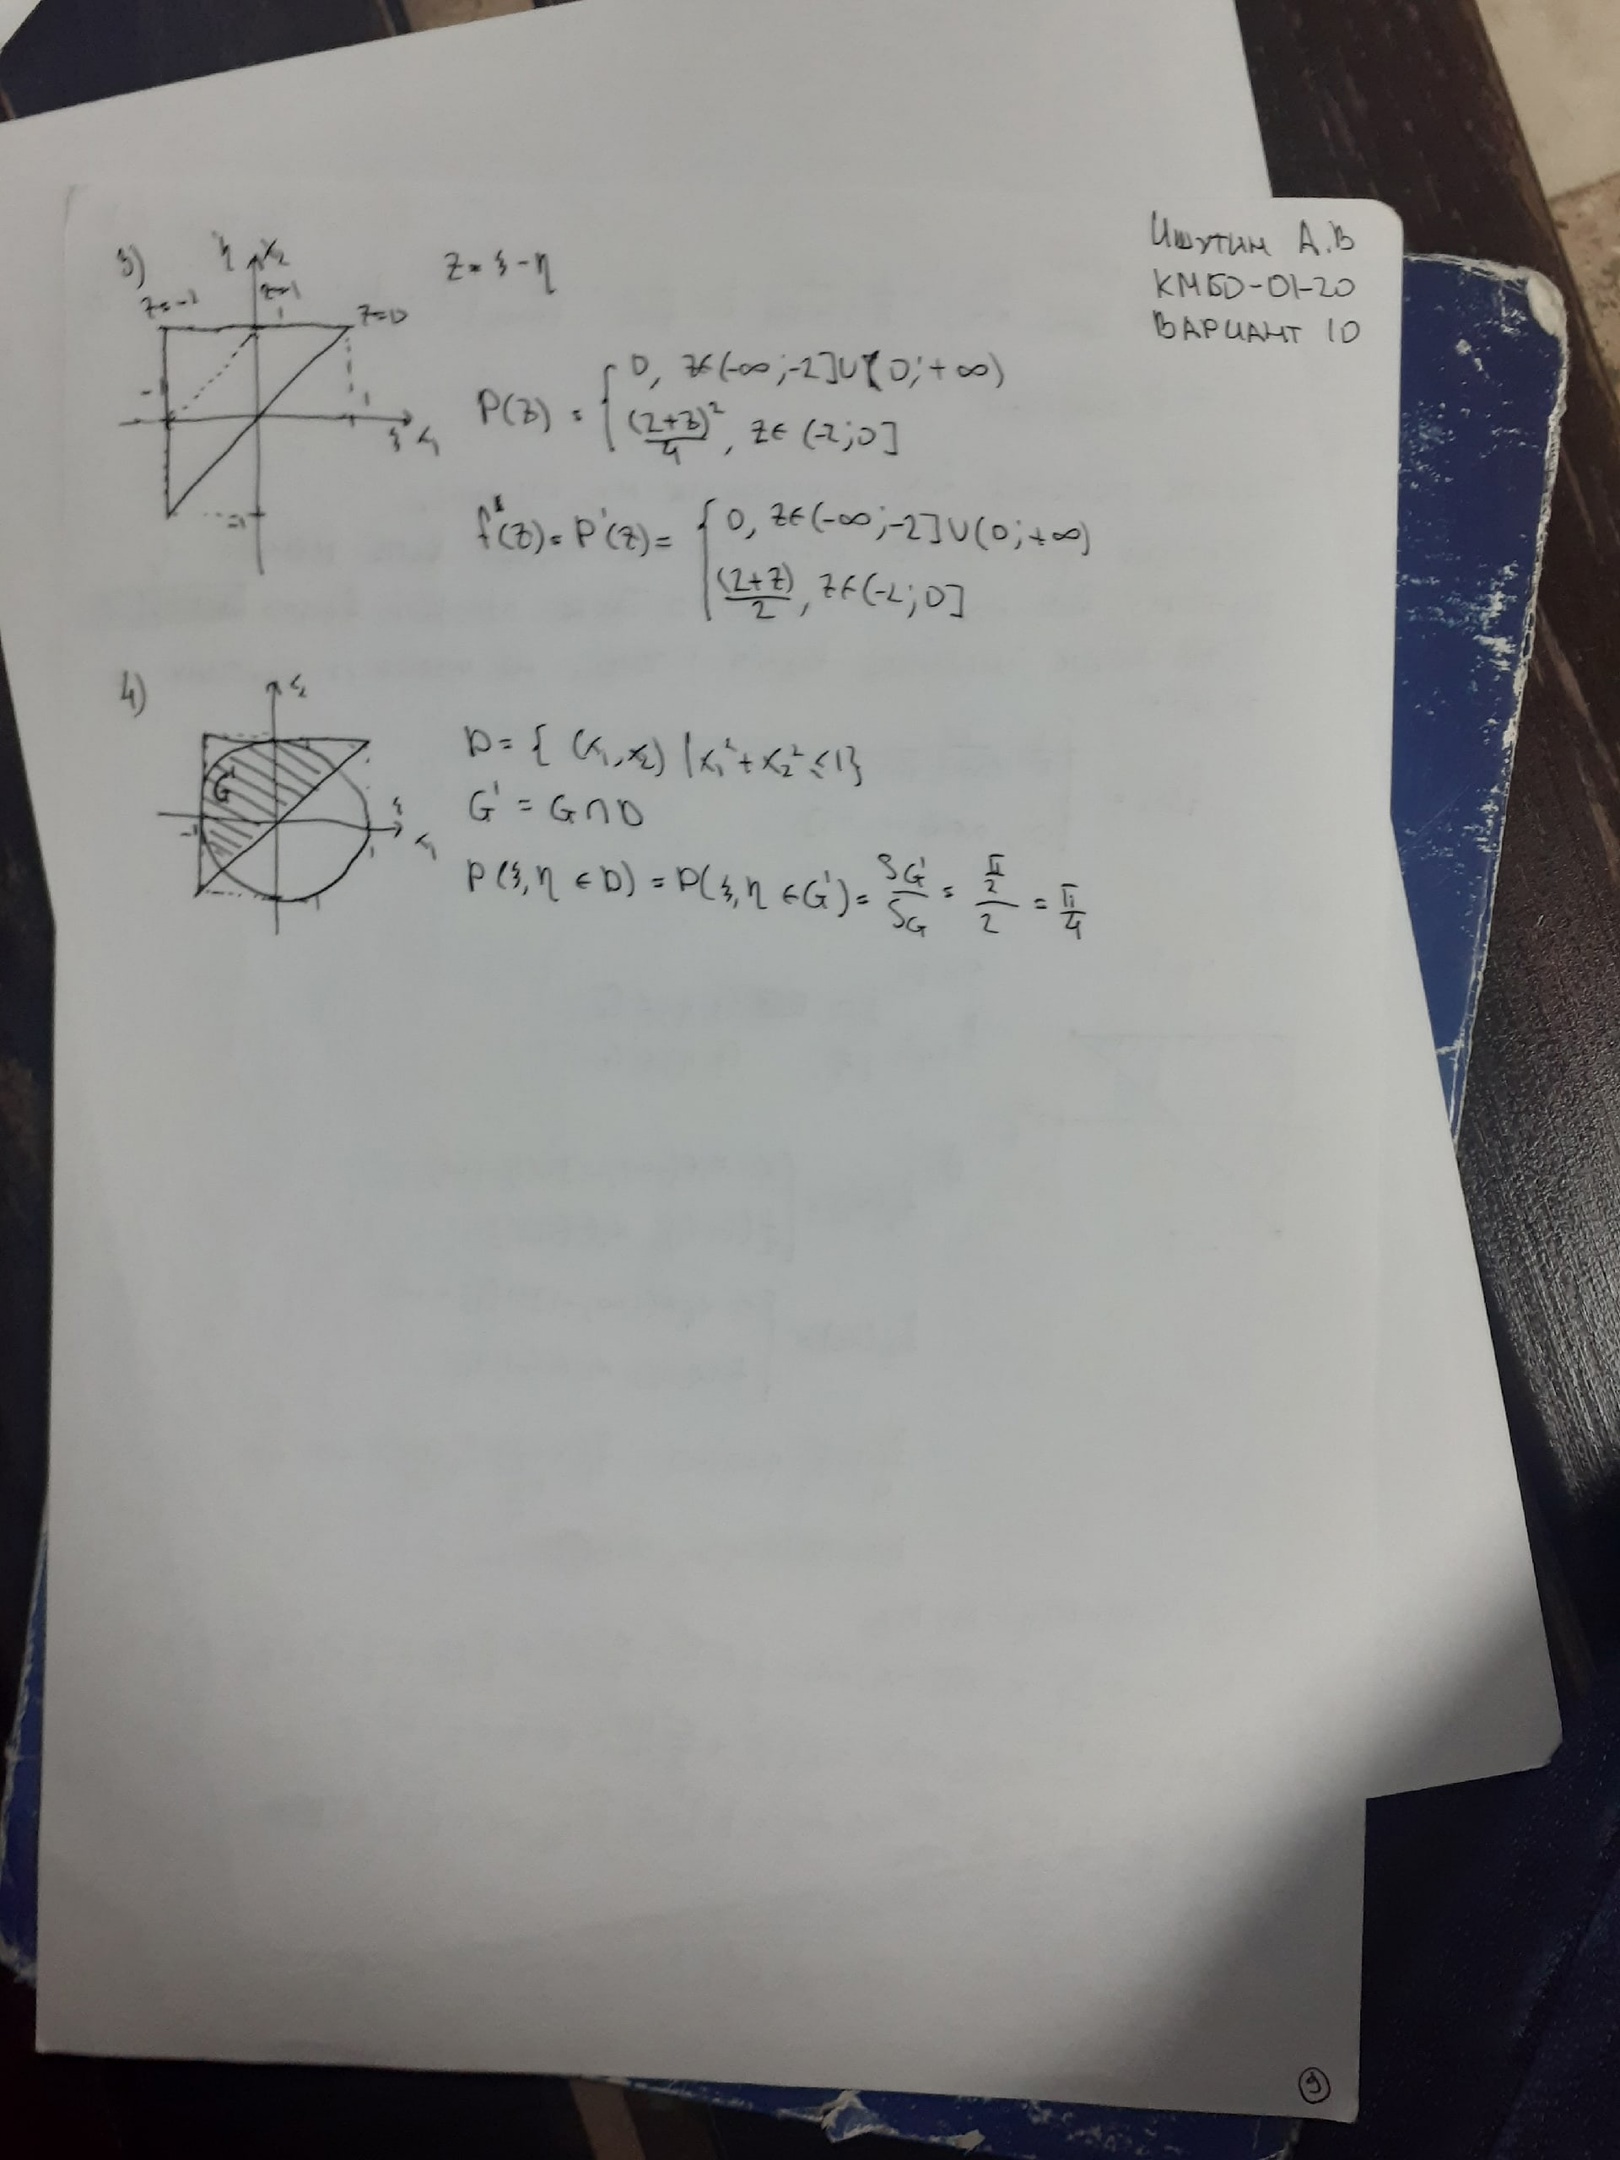 Ишутин А.В
КМБО-01-20
ВАРИАНТ 10
3)
η x₂
z=-2 z=-1 z=0
1
-1 1
ξ x₁
-1
z = ξ - η
P(z) = { 0, z∈(-∞;-2]∪(0;+∞)
(2+z)²/4, z∈(-2;0]
f(z) = P'(z) = { 0, z∈(-∞;-2]∪(0;+∞)
(2+z)/2, z∈(-2;0]
4)
x₂
G'
ξ
-1 1 x₁
D = { (x₁,x₂) | x₁²+x₂² ≤ 1}
G' = G∩D
P(ξ,η ∈ D) = P(ξ,η ∈ G') = S_G'/S_G = (π/2)/2 = π/4
9